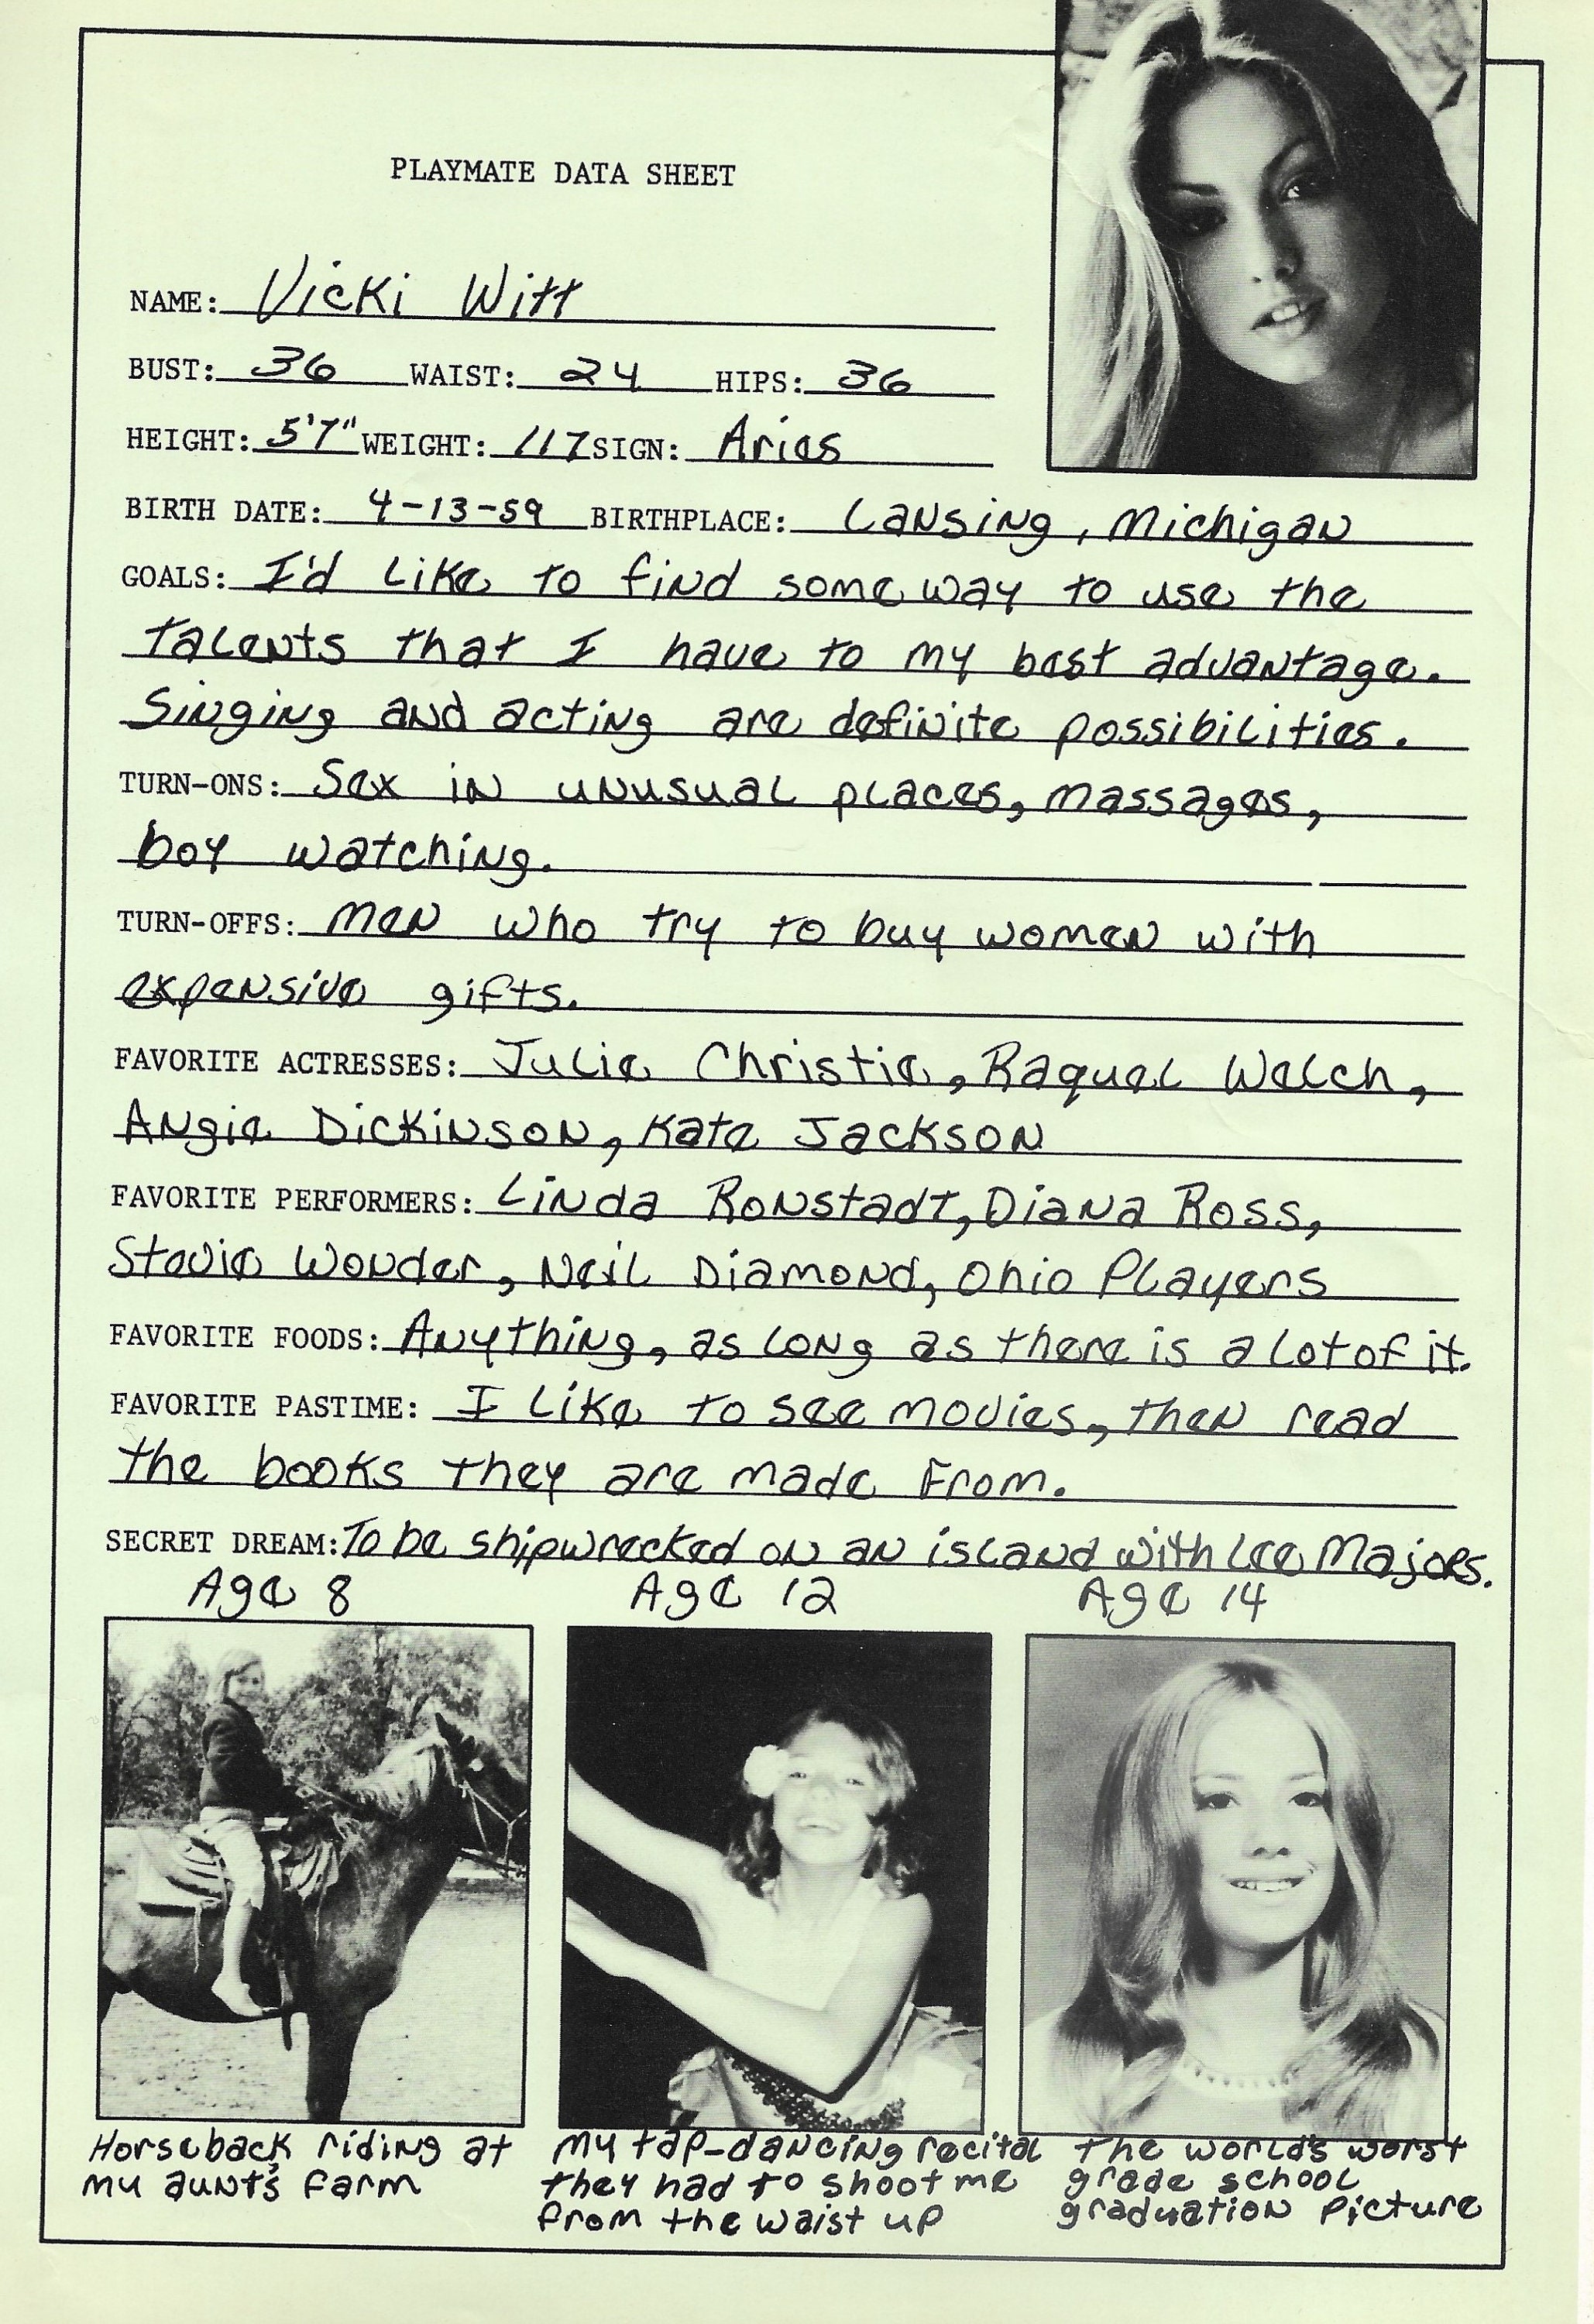 PLAYMATE DATA SHEET
NAME: Vicki Witt
BUST: 36 WAIST: 24 HIPS: 36
HEIGHT: 5'7" WEIGHT: 117 SIGN: Aries
BIRTH DATE: 4-13-59 BIRTHPLACE: Lansing, Michigan
GOALS: I'd like to find some way to use the
talents that I have to my best advantage.
Singing and acting are definite possibilities.
TURN-ONS: Sex in unusual places, massages,
boy watching.
TURN-OFFS: Men who try to buy women with
expensive gifts.
FAVORITE ACTRESSES: Julie Christie, Raquel Welch,
Angie Dickinson, Kate Jackson
FAVORITE PERFORMERS: Linda Ronstadt, Diana Ross,
Stevie Wonder, Neil Diamond, Ohio Players
FAVORITE FOODS: Anything, as long as there is a lot of it.
FAVORITE PASTIME: I like to see movies, then read
the books they are made from.
SECRET DREAM: To be shipwrecked on an island with Lee Majors.
Age 8 Age 12 Age 14
Horseback riding at
my aunt's farm
My tap-dancing recital
they had to shoot me
from the waist up
The world's worst
grade school
graduation picture